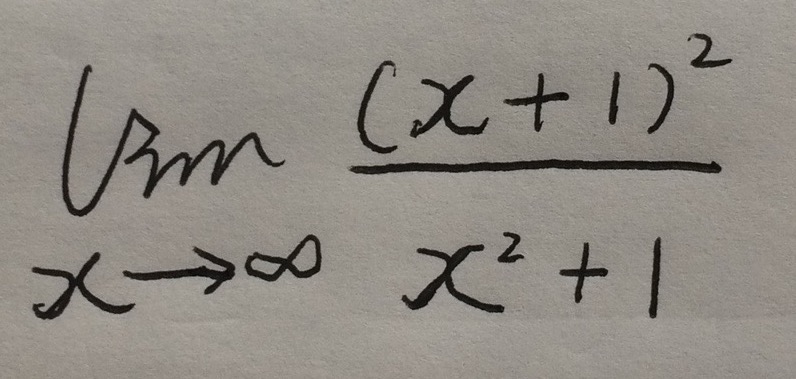 lim (x+1)²
x→∞ x²+1